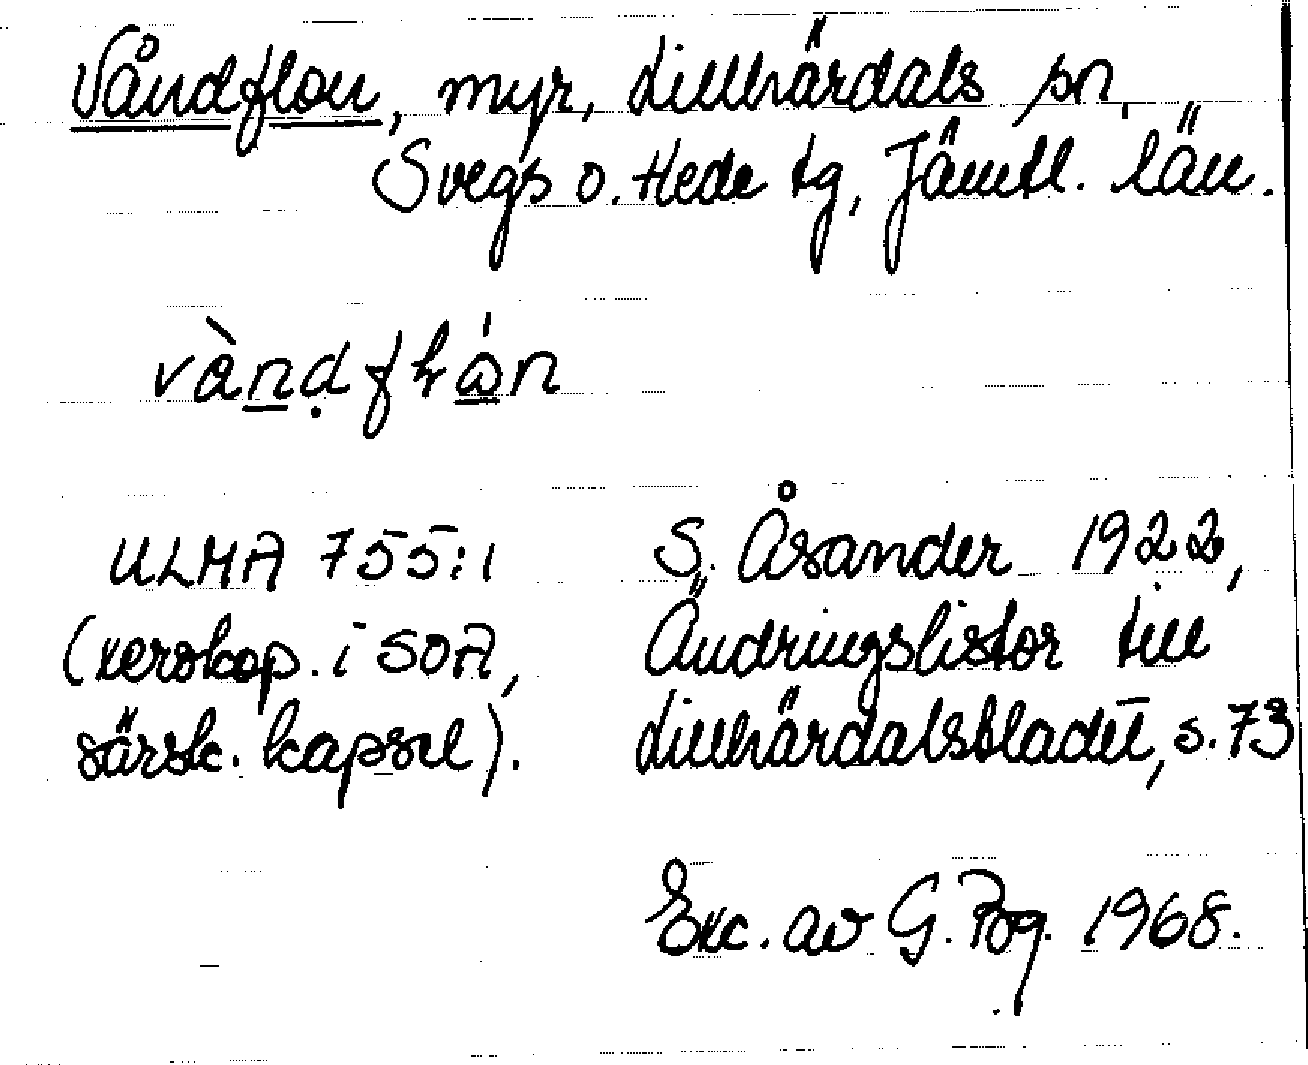 Våndflon, myr, Lillhärdals sn,
Svegs o. Hede tg, Jämtl. län.
ULMA 755:1
(xerokop. i SOA,
särsk. kapsel).
S. Åsander 1922,
Ändringslistor till
Lillhärdalsbladet, s. 73
Exc. av G. 1968.